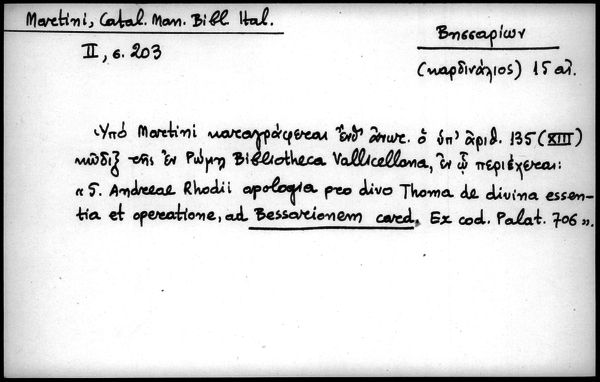 Martini, Catal. Man. Bibl. Ital.
II, σ. 203
Βησσαρίων
(καρδινάλιος) 15 αἰ.
Ὑπό Martini καταγράφεται ἔνθ' ἀνωτ. ὁ ὑπ' ἀριθ. 135 (XIII)
κῶδιξ τῆς ἐν Ρώμῃ Bibliotheca Vallicellana, ἐν ᾧ περιέχεται:
« 5. Andreae Rhodii apologia pro divo Thoma de divina essen-
tia et operatione, ad Bessarionem card. Ex cod. Palat. 706 ».